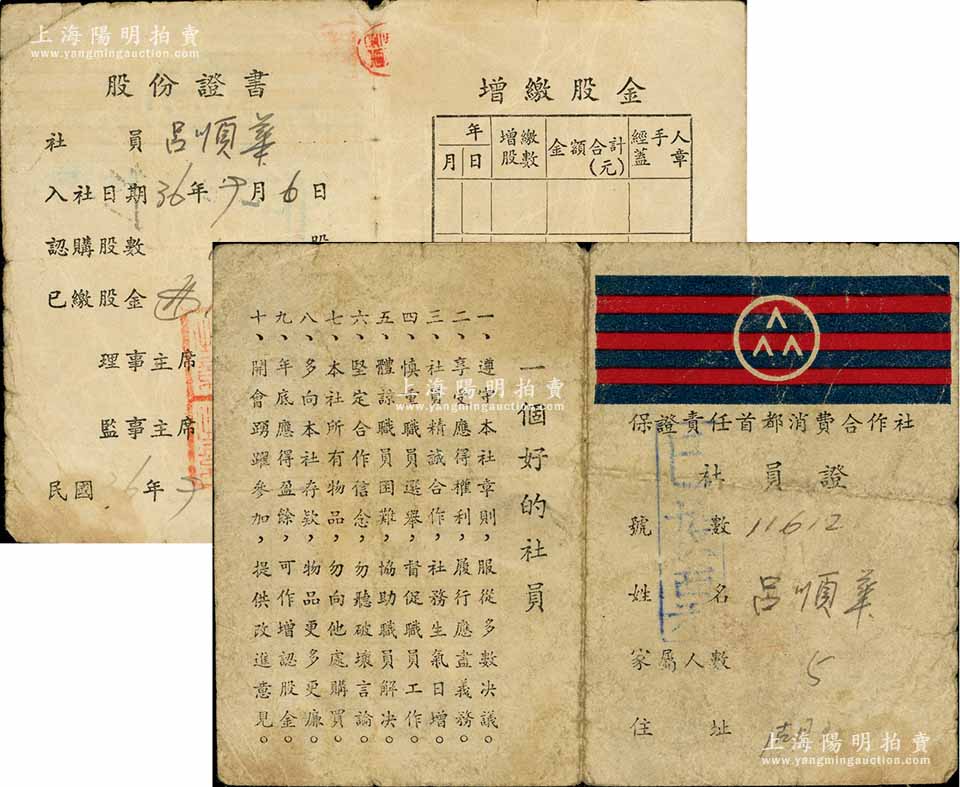 上海陽明拍賣
www.yangmingauction.com
股份證書
社員 呂順華
入社日期 36年 月6日
認購股數
已繳股金
理事主席
監事主席
民國36年
增繳股金
年
月 日
增繳股數
金額合計(元)
經手人蓋章
保證責任首都消費合作社
社員證
號數 11612
姓名 呂順華
家屬人數 5
住址
一個好的社員
一、遵守本社章則，服從多數決議。
二、享受應得權利，履行應盡義務。
三、社員精誠合作，社務生氣日增。
四、慎重職員選舉，督促職員工作。
五、體諒職員困難，協助職員解決。
六、堅定合作信念，勿聽破壞言論。
七、本社所有物品，勿向他處購買。
八、多向本社存欵，物品更多更廉。
九、年底應得盈餘，可作增認股金。
十、開會踴躍參加，提供改進意見。
上海陽明拍賣
www.yangmingauction.com
上海陽明拍賣
www.yangmingauction.com